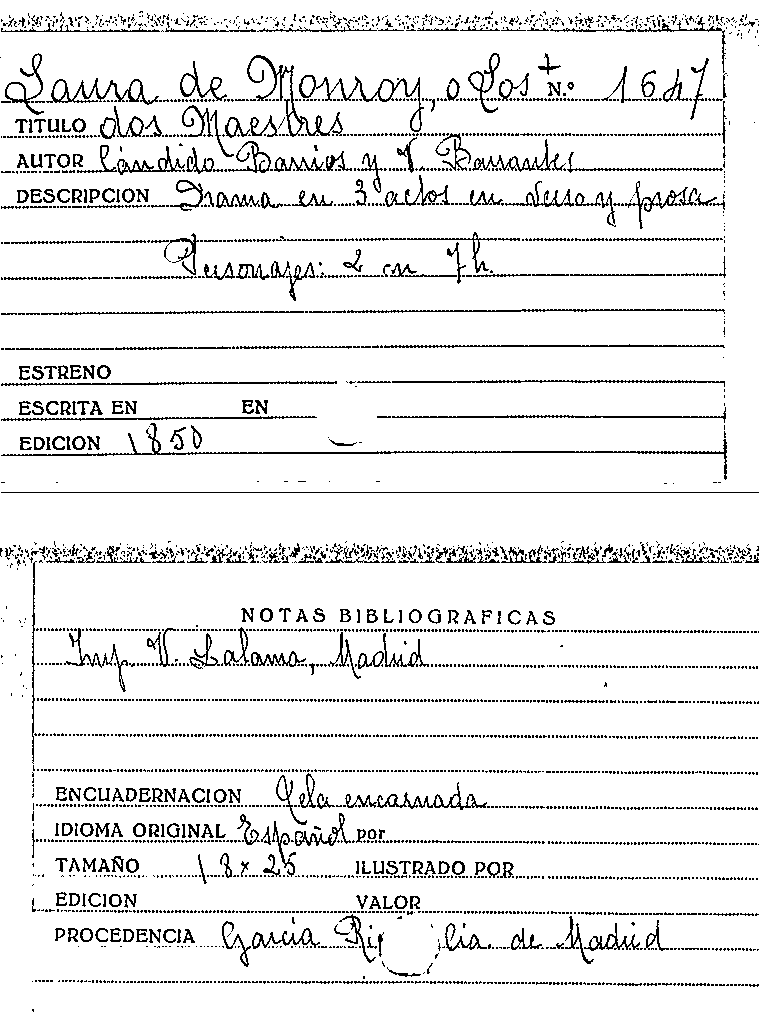 Laura de Monroy, o Los + N.º 1647
TITULO dos Maestres
AUTOR Cándido Barrios y V. Barrantes
DESCRIPCION Drama en 3 actos en verso y prosa
Personajes: 2 m 7 h.
ESTRENO
ESCRITA EN EN
EDICION 1850
NOTAS BIBLIOGRAFICAS
Imp V. Lalama, Madrid
ENCUADERNACION Tela encarnada
IDIOMA ORIGINAL Español por
TAMAÑO 18 x 25 ILUSTRADO POR
EDICION VALOR
PROCEDENCIA García de Madrid